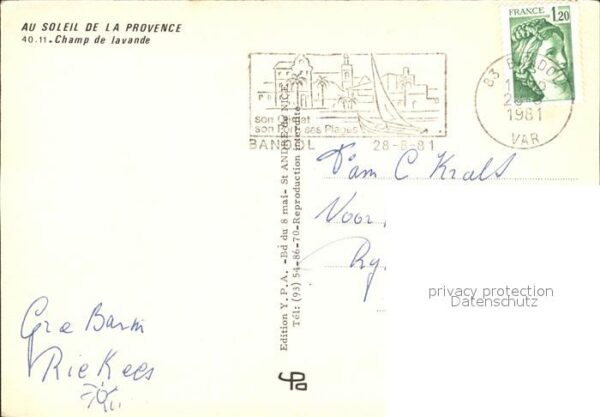 AU SOLEIL DE LA PROVENCE
40.11. Champ de lavande
FRANCE
1,20
83 BANDOL
1981
VAR
son
son Port ses Plages
BANDOL 28-8-81
Edition Y.P.A. -Bd du 8 mai- St ANDRE de NICE
Tél: (93) 54-86-70-Reproduction interdite
Fam C Krals
Voor
Ry
privacy protection
Datenschutz
Gre
Rie Kees